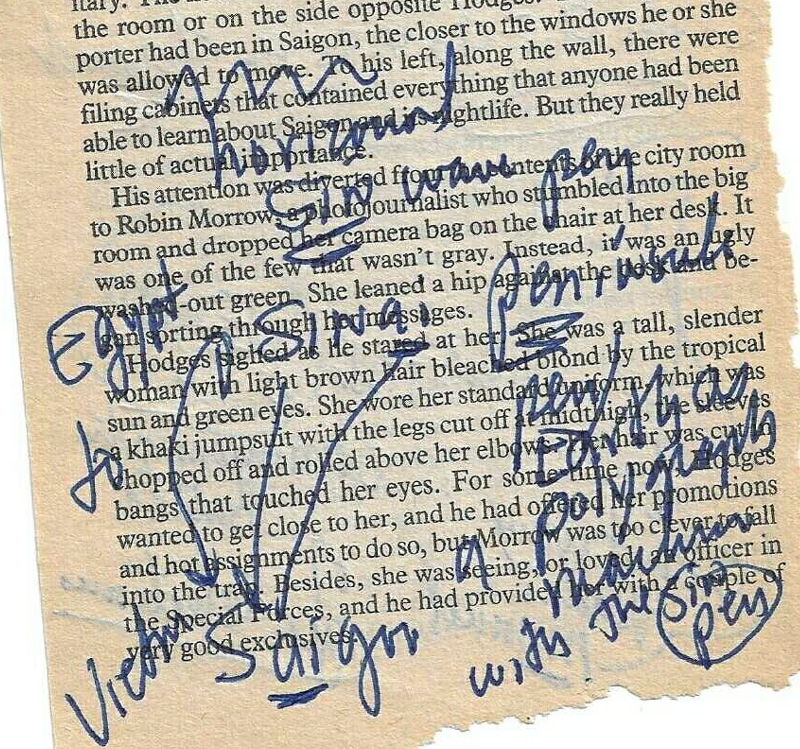 the room or on the side opposite Hodges.
porter had been in Saigon, the closer to the windows he or she
was allowed to move. To his left, along the wall, there were
filing cabinets that contained everything that anyone had been
able to learn about Saigon and its nightlife. But they really held
little of actual importance.
His attention was diverted from the contents of the city room
to Robin Morrow, a photojournalist who stumbled into the big
room and dropped her camera bag on the chair at her desk. It
was one of the few that wasn't gray. Instead, it was an ugly
washed-out green. She leaned a hip against the desk and be-
gan sorting through her messages.
Hodges sighed as he stared at her. She was a tall, slender
woman with light brown hair bleached blond by the tropical
sun and green eyes. She wore her standard uniform, which was
a khaki jumpsuit with the legs cut off at midthigh, the sleeves
chopped off and rolled above her elbows. Her hair was cut in
bangs that touched her eyes. For some time now, Hodges
wanted to get close to her, and he had offered her promotions
and hot assignments to do so, but Morrow was too clever to fall
into the trap. Besides, she was seeing, or loved, an officer in
the Special Forces, and he had provided her with a couple of
very good exclusives.
Sin wave pen
Egypt
Siwa
to
Saigon
pen
a polygraph
machine
with the Sin
pen